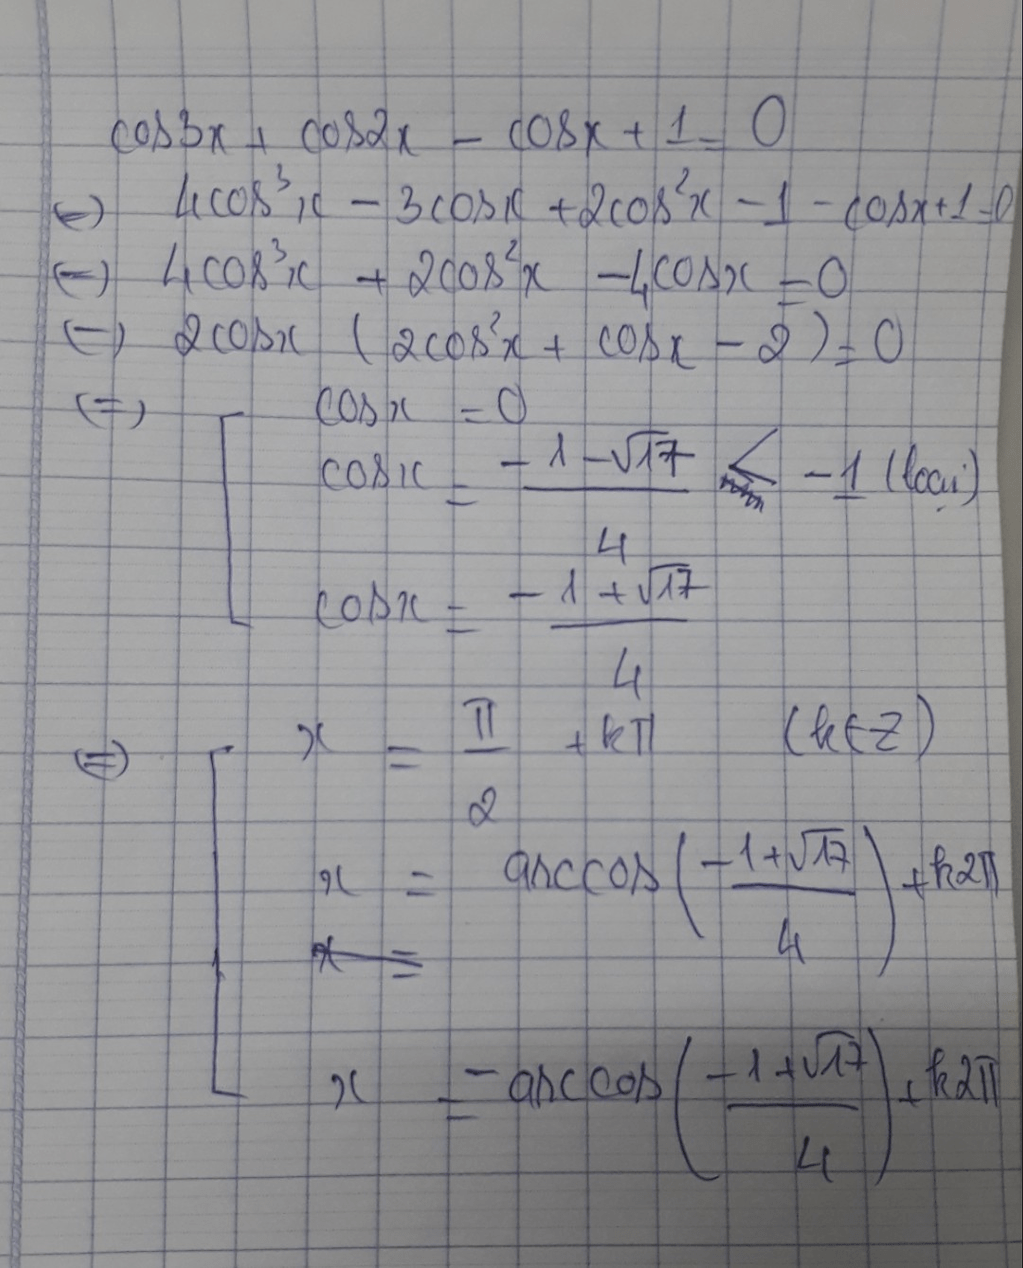 cos3x + cos2x - cosx + 1 = 0
(=) 4cos³x - 3cosx + 2cos²x - 1 - cosx + 1 = 0
(=) 4cos³x + 2cos²x - 4cosx = 0
(=) 2cosx (2cos²x + cosx - 2) = 0
(=) [ cosx = 0
cosx = (-1 - √17)/4 < -1 (loại)
cosx = (-1 + √17)/4
(=) [ x = π/2 + kπ (k∈Z)
x = arccos((-1 + √17)/4) + k2π
x =
x = -arccos((-1 + √17)/4) + k2π